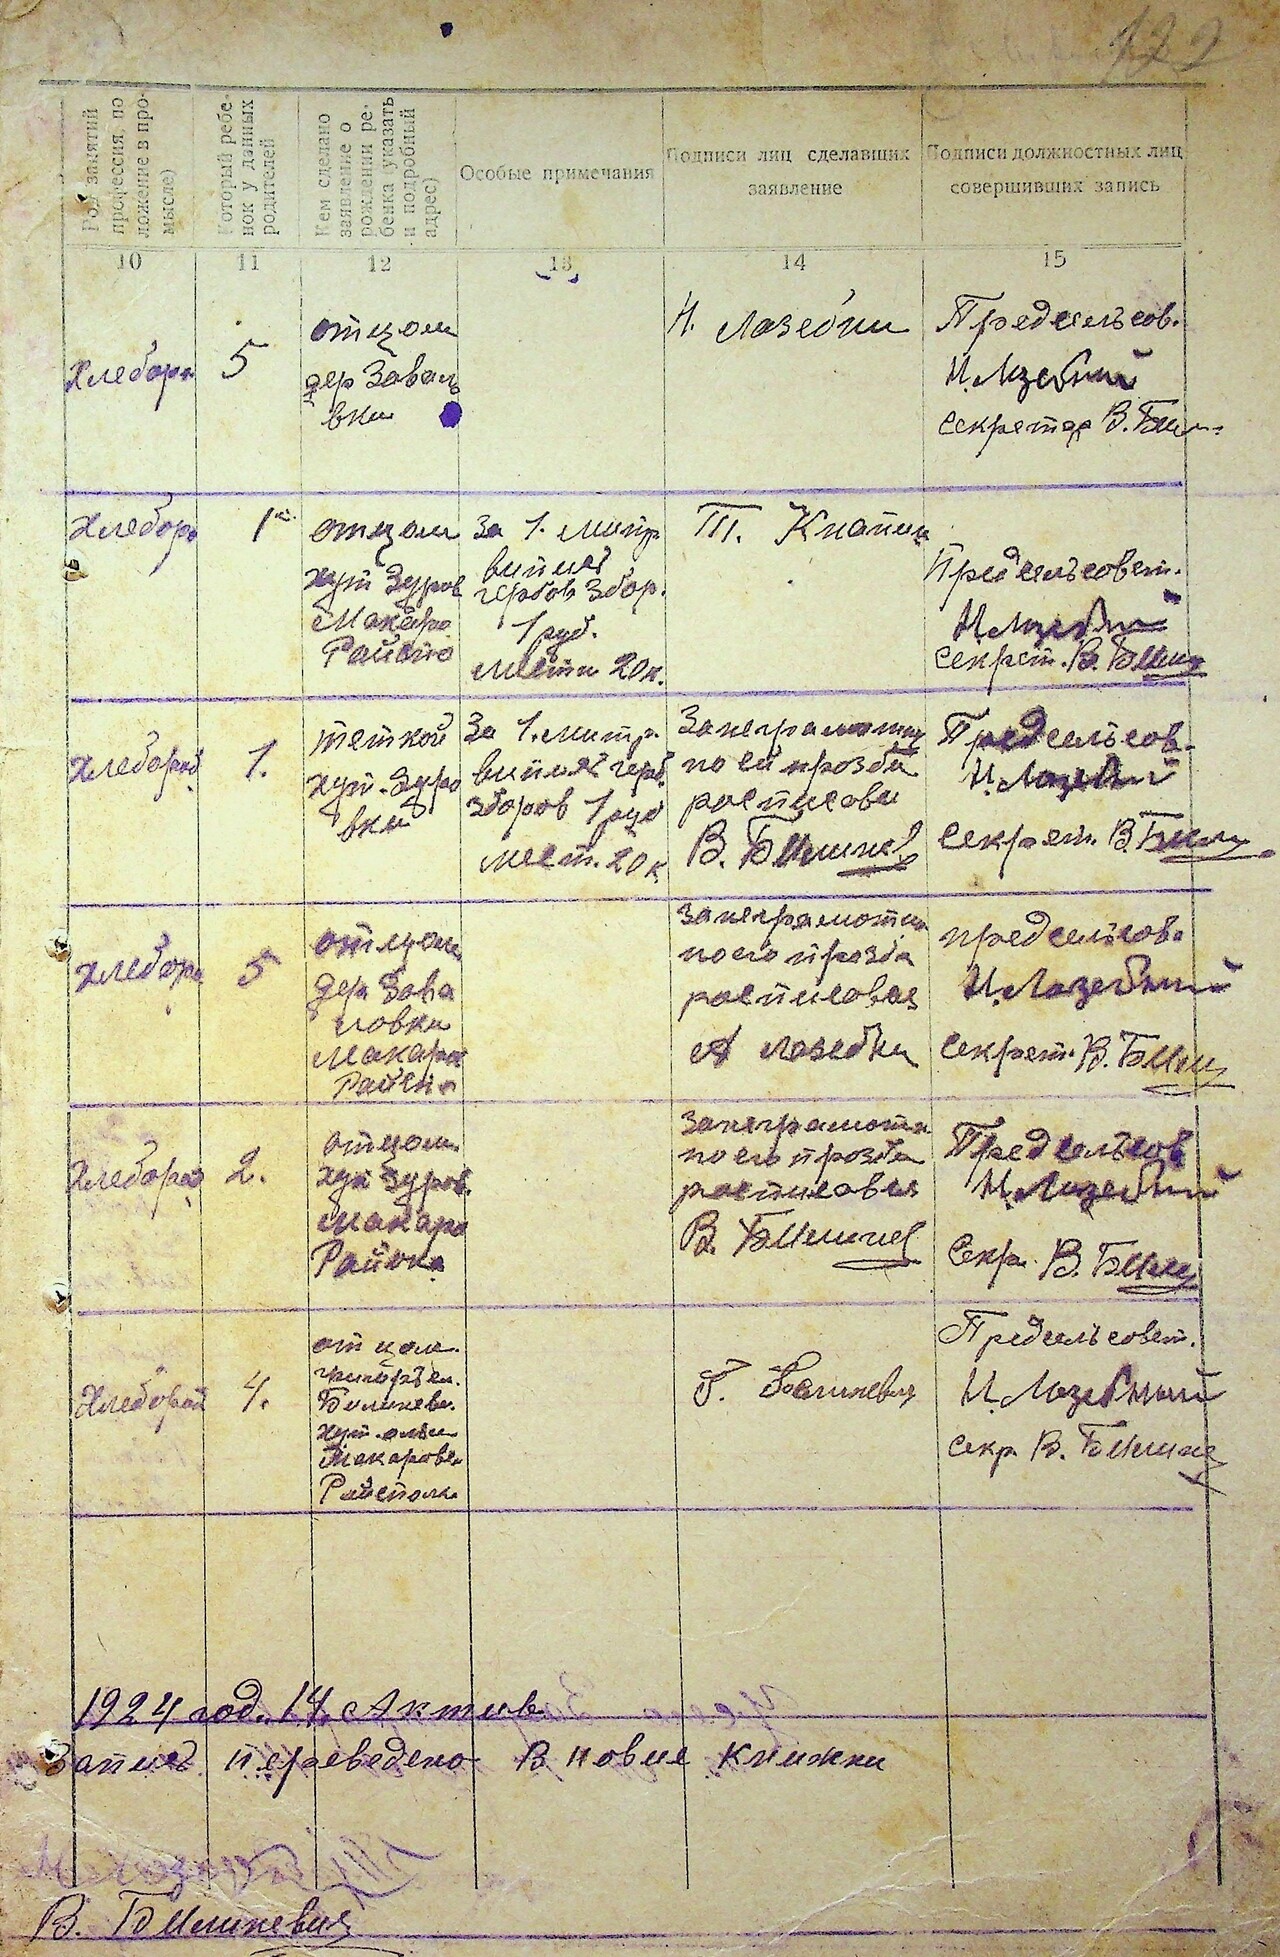 122
Род занятий
профессия, по
ложение в про-
мысле)
Который ребе-
нок у данных
родителей
Кем сделано
заявление о
рождении ре-
бенка (указать
и подробный
адрес)
Особые примечания
Подписи лиц сделавших
заявление
Подписи должностных лиц
совершивших запись
10 11 12 13 14 15
Хлебороб
5
отцом
дер Заваль
вки
Н. Лозебни
Предсельсов.
Н. Лозебний
секретар В.
Хлебороб
1
отцом
хут Зуров
Макаро
Района
За 1. митр
випись
гербов збор.
1 руб.
мести 20 к.
Т. Кнапик
Предсельсовет.
Н. Лозебний
секрет. В.
Хлебороб
1.
теткой
хут. Зуро
вки
За 1. митр.
випись герб.
зборов 1 руб
мест. 20 к.
За неграмотну
по ей прозьби
росписовы
В.
Предсельсов.
Н. Лозебний
секрет. В.
Хлебороб
5
отцом
дер Зава
ловки
Макаров
Района
За неграмотни
по его прозьби
росписовыя
А Лозебни
предсельсов.
Н. Лозебний
секрет. В.
Хлебороб
2.
отцом.
хут Зуров.
Макаро
Района
За неграмотн
по его прозьби
росписовыя
В.
Предсельсов
Н. Лозебний
секр. В.
Хлебороб
4.
отцом.
хут.
Макаровск
Г.
Предсельсовет.
Н. Лозебный
секр В.
1924 год. 14. Актив
Запись переведено В новие книжки
В.